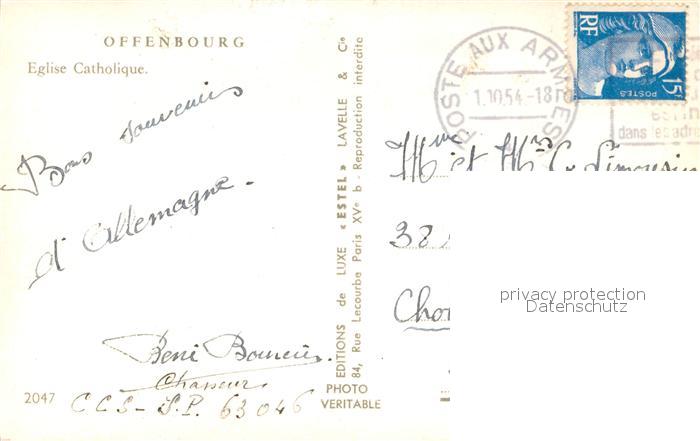 OFFENBOURG
Eglise Catholique.
Bons souvenirs
d'Allemagne.
Chasseur
CCS - S.P. 63046
2047
EDITIONS de LUXE « ESTEL » LAVELLE & Cie
84, Rue Lecourbe Paris XVe b - Reproduction interdite
PHOTO
VERITABLE
POSTE AUX ARMEES
1.10.54-18
RF
POSTES
15F
dans les adre
Mr et Mme Limousin
38
Cho
privacy protection
Datenschutz